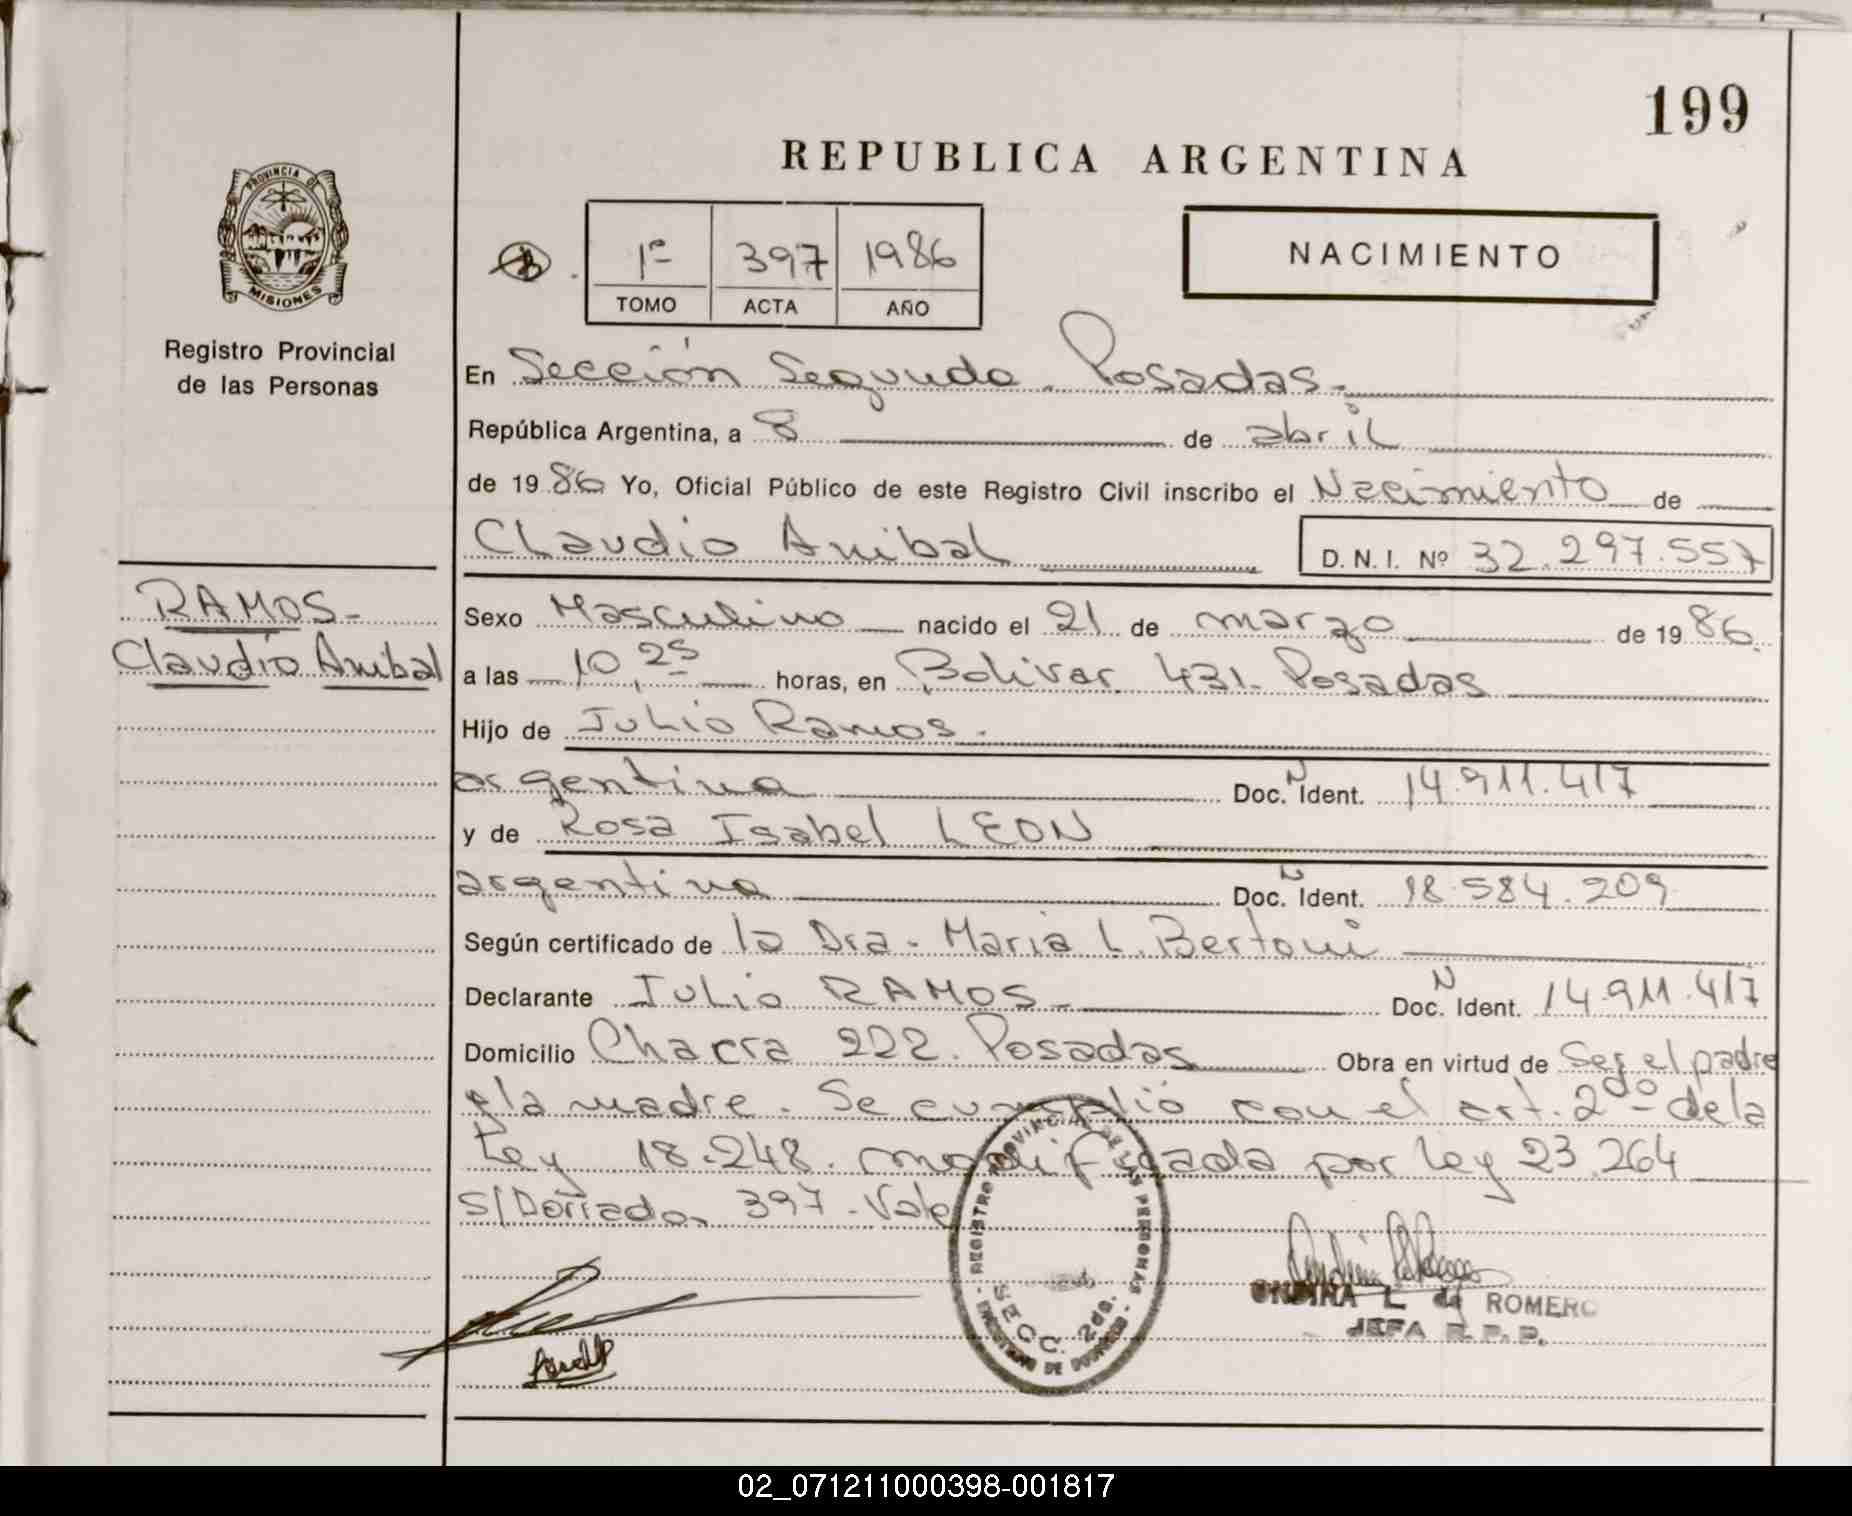 199
REPUBLICA ARGENTINA
PROVINCIA DE
MISIONES
Registro Provincial
de las Personas
1º 397 1986
TOMO ACTA AÑO
NACIMIENTO
En Sección Segunda. Posadas.
República Argentina, a 8 de abril
de 1986 Yo, Oficial Público de este Registro Civil inscribo el Nacimiento de
Claudio Anibal D. N. I. Nº 32.297.557
RAMOS-
Claudio Anibal
Sexo Masculino nacido el 21 de marzo de 1986.
a las 10,25 horas, en Bolivar 431. Posadas
Hijo de Julio Ramos.
argentina Doc. N Ident. 14.911.417
y de Rosa Isabel LEON
argentina Doc. N Ident. 18.584.209
Según certificado de la Dra. Maria L. Bertoni
Declarante Julio RAMOS- Doc. N Ident. 14.911.417
Domicilio Chacra 222. Posadas Obra en virtud de Ser el padre
y la madre. Se cumplió con el art. 2do de la
Ley 18.248. modificada por Ley 23.264
397 - Vale
REGISTRO PROVINCIAL DE LAS PERSONAS
SECC. 2da.
ONDINA L. de ROMERO
JEFA R. P. P.
02_071211000398-001817